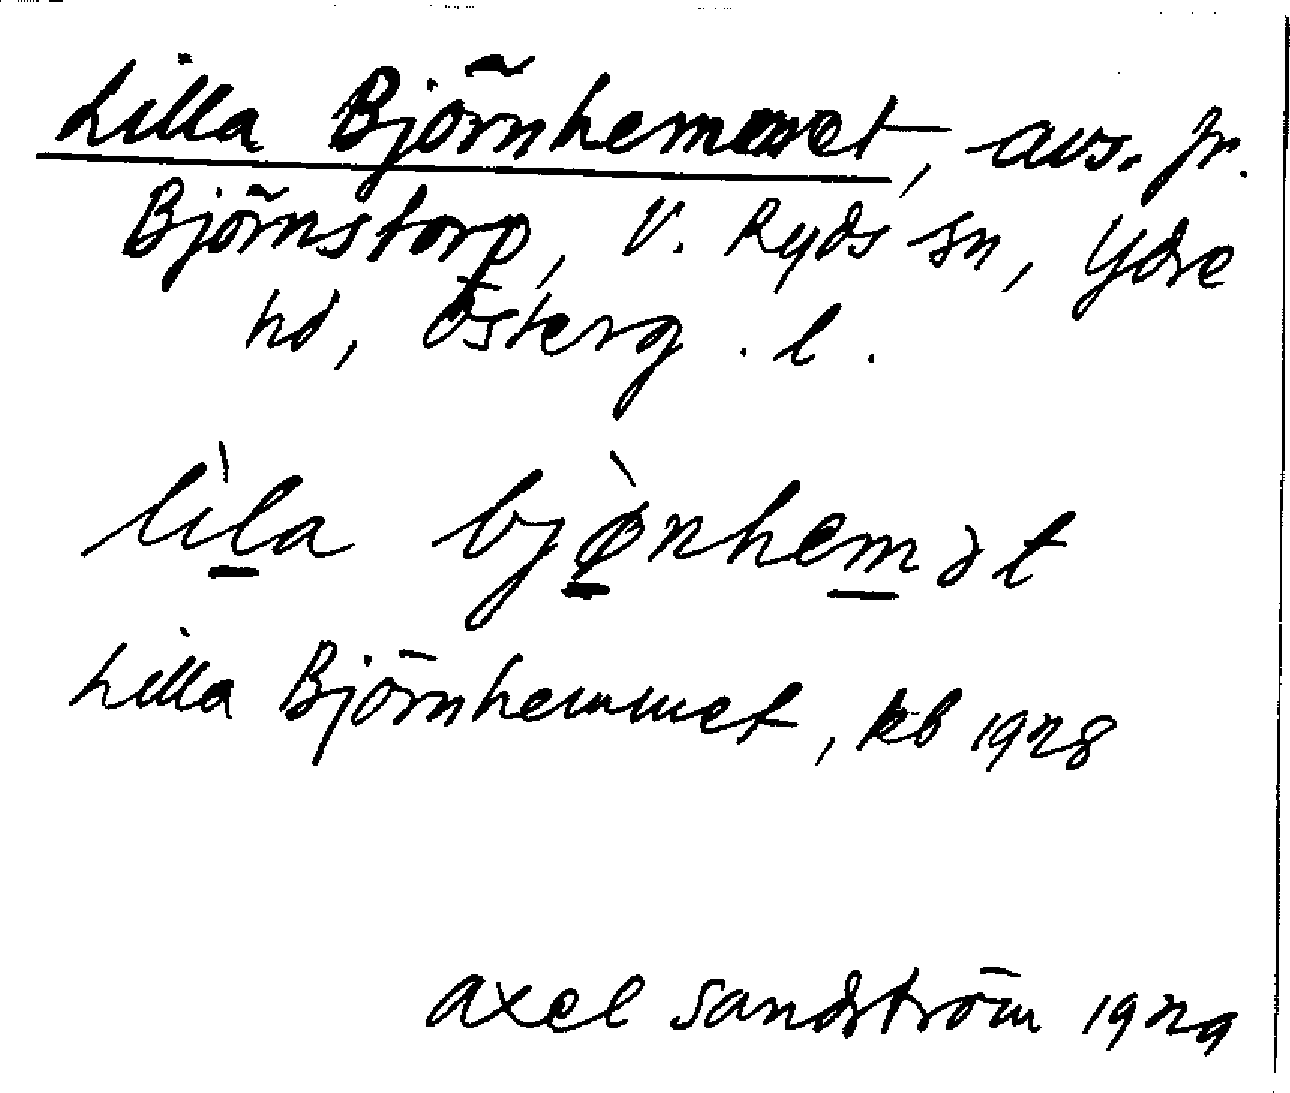 Lilla Björnhemmet, avs. fr.
Björnstorp, V. Ryds sn, Ydre
hd, Österg. l.
lìla bjø̀nhemət
Lilla Björnhemmet, kb 1928
Axel Sandström 1929